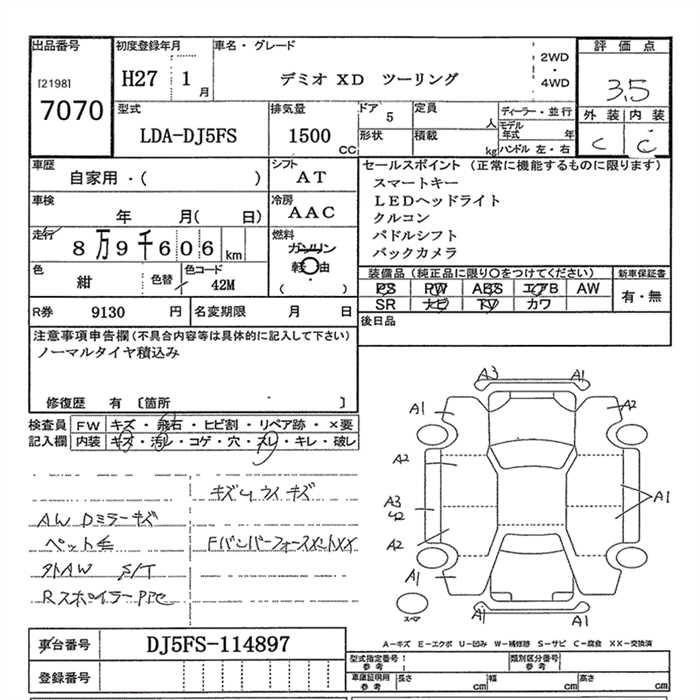 出品番号 初度登録年月 車名・グレード 評価点
[2198]
7070
H27 1 月
デミオ XD ツーリング
2WD
・
4WD
3.5
型式 排気量 ドア 5 定員 人 ディーラー・並行 外装 内装
LDA-DJ5FS 1500 CC 形状 積載 kg モデル年式 年
ハンドル 左・右
C C
車歴 シフト セールスポイント (正常に機能するものに限ります)
自家用・( ) AT
スマートキー
LEDヘッドライト
クルコン
パドルシフト
バックカメラ
車検 年 月( 日) 冷房 AAC
走行 8万9千606 km 燃料 ガソリン
軽油
( )
色 紺 色替 色コード 42M
装備品 (純正品に限り○をつけてください) 新車保証書
PS PW ABS エアB AW
SR ナビ TV カワ
有・無
R券 9130 円 名変期限 月 日
後日品
注意事項申告欄(不具合内容等は具体的に記入して下さい)
ノーマルタイヤ積込み
修復歴 有 〔箇所 〕
検査員 FW キズ・飛石・ヒビ割・リペア跡・×要
記入欄 内装 キズ・汚レ・コゲ・穴・スレ・キレ・破レ
A3 A1
A1 A2
A2
A3
A1
A2
A1
A1 A1
スペア
AW Dミラーキズ
S/T
車台番号 DJ5FS-114897
登録番号
A-キズ E-エクボ U-凹み W-補修跡 S-サビ C-腐食 XX-交換済
型式指定番号 類別区分番号
参考 参考
車庫証明用 長さ cm 幅 cm 高さ cm
参考